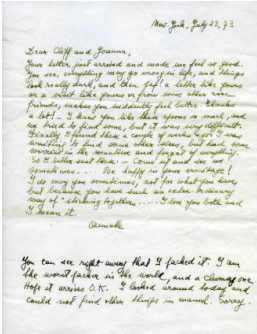 New York, July 23, 83
Dear Cliff and Joanna,
Your letter just arrived and made me feel so good.
You see, everything may go wrong in life, and things
look really dark, and then just a letter like yours
or a visit like yours or from some other rare
friends, makes you suddenly feel better. Thanks
a lot! - I knew you like these spoons so much, and
we tried to find some, but it was very different.
Finally I found them a couple of weeks ago. I was
waiting to find some other
worries in the meantime and forgot everything.
So I better send these - Come up and see us
sometimes.... Be happy in your
I do envy you sometimes, not for what you have
but because you have such an extra-ordinary
way of "sticking together".... I love you both and
I mean it.
You can see right away that I packed it: I am
the worst packer in the world, and a clumsy one.
Hope it arrives O.K. I looked around today and
could not find other things in enamel. Sorry.